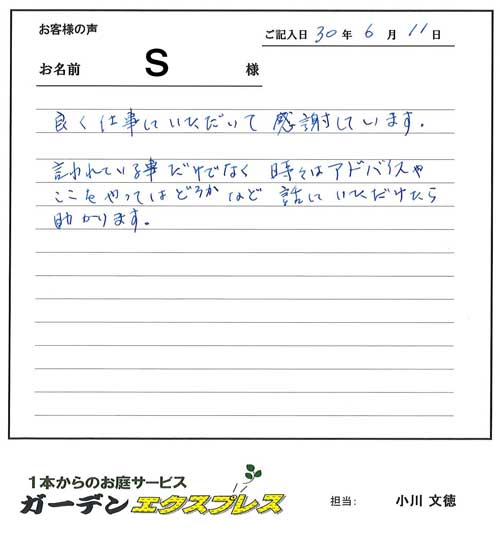 お客様の声
ご記入日 30 年 6 月 11 日
お名前 S 様
良く仕事していただいて 感謝しています。
言われている事だけでなく 時々はアドバイスや
ここをやってはどうかなど 話していただけたら
助かります。
1本からのお庭サービス
ガーデンエクスプレス
担当: 小川 文徳